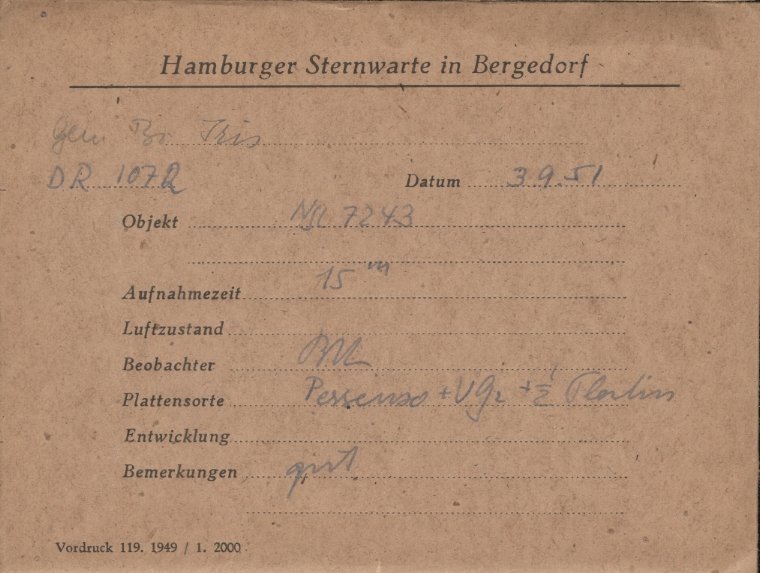 Hamburger Sternwarte in Bergedorf
Iris
DR 1072 Datum 3.9.51
Objekt 7243
Aufnahmezeit 15 m
Luftzustand
Beobachter
Plattensorte + VG2 + 1/2
Entwicklung
Bemerkungen gut
Vordruck 119. 1949 / 1. 2000